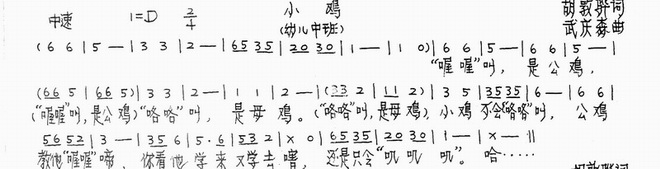 小 鸡
(幼儿中班)
中速 1=D 2/4
胡敦骅词
武庆森曲
(6 6 | 5 — | 3 3 | 2 — | 65 35 | 20 30 | 1 — | 1 0) | 6 6 | 5 — | 6 6 | 5 — |
“喔喔”叫, 是公鸡,
(66 5 | 66 5) | 3 3 | 2 — | 1 1 | 2 — | (33 2 | 11 2) | 3 5 | 35 35 | 6 — | 6 6 |
(“喔喔”叫,是公鸡)“咯咯”叫, 是母鸡。(“咯咯”叫,是母鸡)小鸡不会“咯咯”叫, 公鸡
56 52 | 3 — | 35 6 | 5·6 | 53 2 | x 0 | 65 35 | 20 30 | 1 — | x — ‖
教他“喔喔”啼, 你看他学来又学去嗜, 还是只会“叽叽叽”。哈……